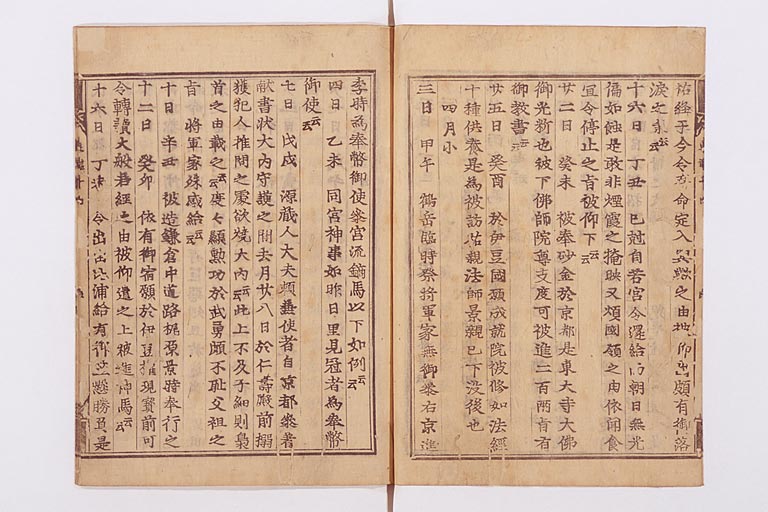 祐経子今令奉命定入 之由也仰出頗有御落
涙之気云云
十六日 丁丑 已剋自若宮令還給而朝日無光
偏如蝕是敢非煙霞之掩映又煩国領之由依聞食
宜令停止之旨被仰下云云
廿二日 癸未 被奉砂金於京都是東大寺大佛
御光新也被下佛師院尊支度可被進二百両旨有
御教書云云
廿五日 癸酉 於伊豆國願成就院被修如法経
十種供養是為被訪祐親法師景親已下没後也
四月小
三日 甲午 鶴岳臨時祭将軍家無御参右京進
季時為奉幣御使参宮流鏑馬以下如例云云
四日 乙未 同宮神事如昨日里見冠者為奉幣
御使云云
七日 戊戌 源蔵人大夫頼兼使者自京都参着
献書状大内守護之間去月廿八日於仁壽殿前搦
獲犯人推問之處欲焼大内云云此上不及子細則梟
首之由載之云云度々顕勲功於武勇頗不耻父祖之
旨 将軍家殊感給云云
十日 辛丑 被造鎌倉中道路梶原景時奉行之
十二日 癸卯 依有御宿願於伊豆権現寳前可
令轉讀大般若経之由被仰遣之上被進神馬云云
十六日 丁未 令出 浦給有御 懸勝負是